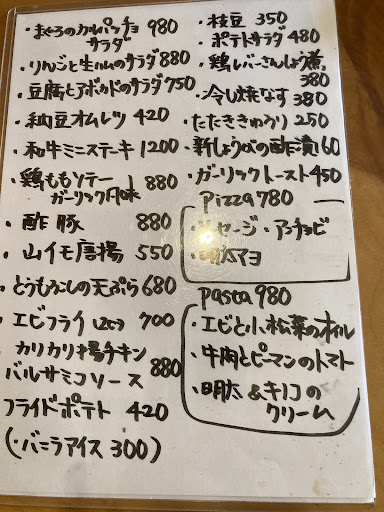 ・まぐろのカルパッチョ 980
サラダ
・りんごと生ハムのサラダ 880
・豆腐とアボカドのサラダ 750
・納豆オムレツ 420
・和牛ミニステーキ 1200
・鶏ももソテー 880
ガーリック風味
・酢豚 880
・山イモ唐揚 550
・とうもろこしの天ぷら 680
・エビフライ 700
・カリカリ揚チキン
バルサミコソース 880
フライドポテト 420
(・バニラアイス 300)
・枝豆 350
・ポテトサラダ 480
・鶏レバーさんしょう煮
380
・冷し焼なす 380
・たたききゅうり 250
・新しょうがの酢漬 160
・ガーリックトースト 450
pizza 780
セージ・アンチョビ
・明太マヨ
pasta 980
・エビと小松菜のオイル
・牛肉とピーマンのトマト
・明太&キノコの
クリーム